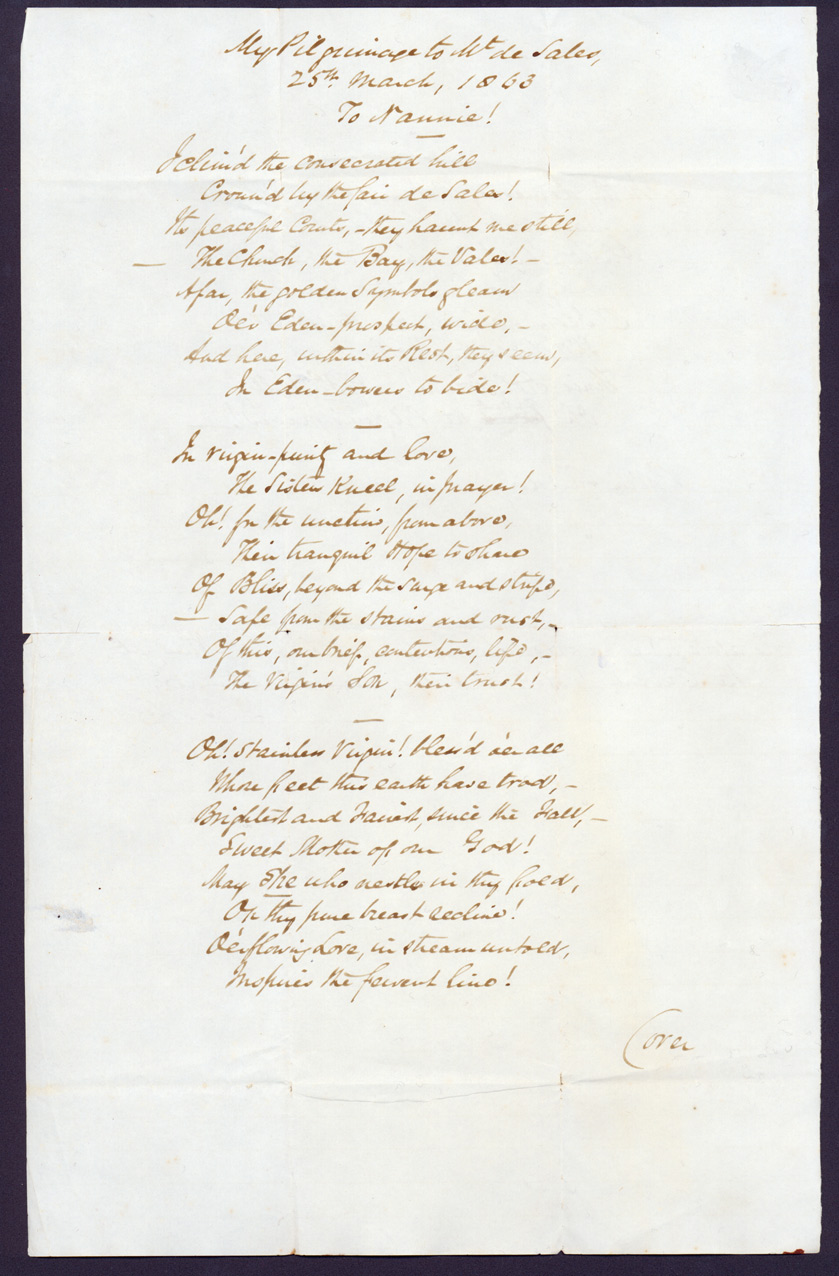 My Pilgrimage to Mt. de Sales,
25th March, 1863
To Nannie!
I climb'd the consecrated hill
Crown'd by the fair de Sales!
Its peaceful Courts, - they haunt me still,
- The Church, the Bay, the Vales! -
Afar, the golden Symbols gleam
O'er Eden-prospect, wide, -
And here, within its Rest, they seem,
In Eden-bowers to bide!
In virgin-purity and love,
The Sisters Kneel, in prayer!
Oh! for the unction, from above,
Their tranquil Hope to share
Of Bliss, beyond the surge and strife,
- Safe from the stains and rust, -
Of this, our brief, contentious, life, -
The Virgin's Son, their trust!
Oh! Stainless Virgin! bless'd o'er all
Whose feet this earth have trod, -
Brightest and Fairest, since the Fall, -
Sweet Mother of our God!
May She who nestles in thy fold,
On thy pure breast recline!
O'erflowing Love, in stream untold,
Inspires the fervent line!
(over